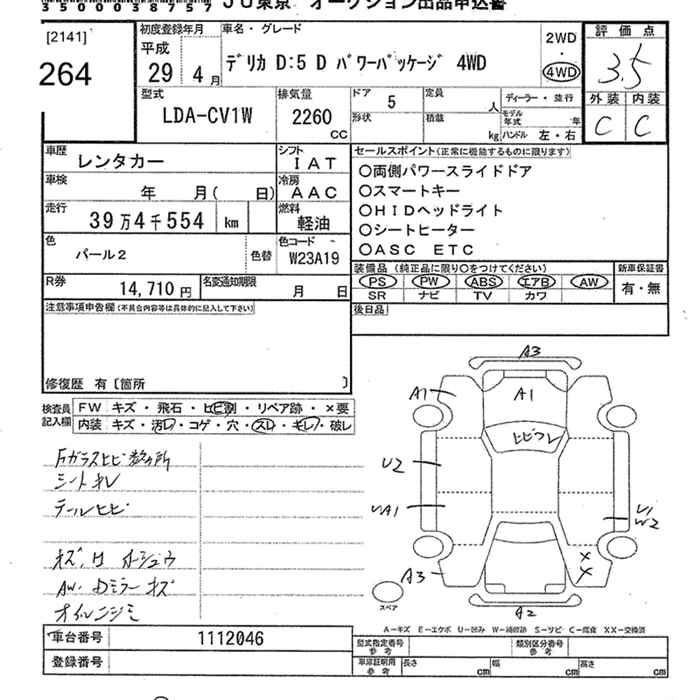 35000038757 JU東京 オークション出品申込書
[2141]
264
初度登録年月
平成
29 4 月
車名・グレード
デリカ D:5 D パワーパッケージ 4WD
2WD
・
4WD
評価点
3.5
外装 内装
C C
型式
LDA-CV1W
排気量
2260
CC
ドア
5
定員
人
形状
積載
kg
ディーラー・並行
モデル年式
年
ハンドル 左・右
車歴
レンタカー
シフト
IAT
車検
年 月( 日)
冷房
AAC
走行
39万4千554 km
燃料
軽油
色
パール2
色替
色コード
W23A19
R券
14,710 円
名変通知期限
月 日
セールスポイント(正常に機能するものに限ります)
○両側パワースライドドア
○スマートキー
○HIDヘッドライト
○シートヒーター
○ASC ETC
装備品(純正品に限り○をつけてください)
PS PW ABS エアB AW
SR ナビ TV カワ
新車保証書
有・無
後日品
注意事項申告欄(不具合内容等は具体的に記入して下さい)
修復歴 有〔箇所 〕
検査員
記入欄
FW キズ・飛石・ヒビ割・リペア跡・×要
内装 キズ・汚レ・コゲ・穴・スレ・キレ・破レ
Fガラスヒビ数ヶ所
シートキレ
テールヒビ
キズ、凹 カッショウ
AW・Dミラーキズ
オイルニジミ
A3
A1
A1
ヒビワレ
U2
UA1
U1
W2
A3
×
×
A2
スペア
A-キズ E-エクボ U-凹み W-補修跡 S-サビ C-腐食 XX-交換済
車台番号
1112046
登録番号
型式指定番号
参考
類別区分番号
参考
車庫証明用
参考
長さ
cm
幅
cm
高さ
cm